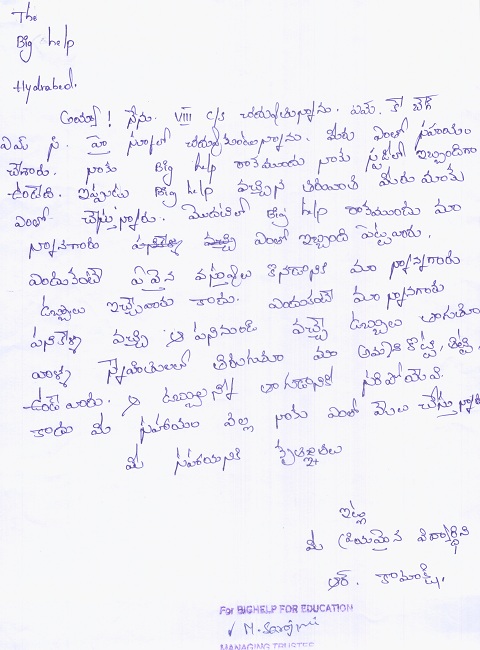 The
Big help
Hydrabad.
అయ్యా! నేను VIII c/s చదువుతున్నాను. ఎమ్. కె బెగ్
ఎమ్ సి. హై స్కూలో చదువుకుంటున్నాను. మీరు ఎంతో సహాయం
చేశారు. నాకు Big help రాకముందు నాకు స్టడీలో ఇబ్బందిగా
ఉండేది. ఇప్పుడు Big help వచ్చిన తరువాత మీరు మాకు
ఎంతో చేస్తున్నారు. మొదటిలో Big help రాకముందు మా
నాన్నగారు ఎంతో ఇబ్బంది పెట్టవారు.
ఎందుకంటే ఏవైన వస్తువులు కొనడానికి మా నాన్నగారు
డబ్బులు ఇచ్చేవారు కాదు. ఎందుకంటే మా నాన్నగారు
పనికెళ్ళి వచ్చి ఆ పనినుండి వచ్చే డబ్బులు తాగుతూ
వాళ్ళ స్నేహితులతో తిరుగుతూ మా అమ్మని కొట్టి, తిట్టి,
ఉండేవారు. ఆ డబ్బులన్నీ తాగడానికే సరిపోయేవి
కాదు మీ సహాయం వల్ల నాకు ఎంతో మేలు చేస్తున్నారు
మీ సహాయనికి కృతజ్ఞతలు
ఇట్లు
మీ ప్రియమైన విద్యార్థిని
ఆర్. కామాక్షి.
For BIGHELP FOR EDUCATION
M. Sarojini
MANAGING TRUSTEE